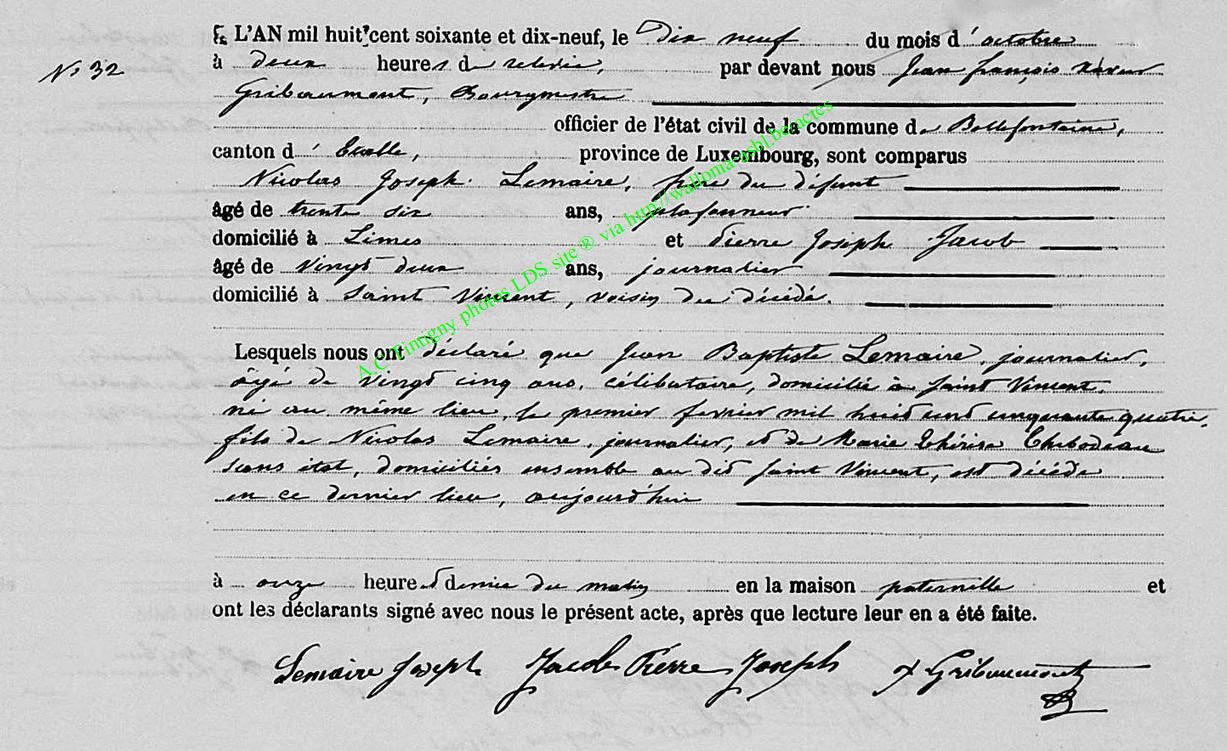 L'AN mil huit cent soixante et dix-neuf, le Dix neuf du mois d'octobre
N° 32
à deux heures de relevée, par devant nous Jean François Xavier
Gribaumont, Bourgmestre
officier de l'état civil de la commune de Bellefontaine,
canton d'Etalle, province de Luxembourg, sont comparus
Nicolas Joseph Lemaire, frère du défunt
âgé de trente six ans, plafonneur
domicilié à Limes et Pierre Joseph Jacob
âgé de vingt deux ans, journalier
domicilié à Saint Vincent, voisin du décédé.
Lesquels nous ont déclaré que Jean Baptiste Lemaire, journalier,
âgé de vingt cinq ans, célibataire, domicilié à Saint Vincent,
né au même lieu, le premier fevrier mil huit cent cinquante quatre,
fils de Nicolas Lemaire, journalier, et de Marie Thérèse Thibodeau
sans état, domiciliés ensemble au dit Saint Vincent, est décédé
en ce dernier lieu, aujourd'hui
à onze heures et demie du matin en la maison paternelle et
ont les déclarants signé avec nous le présent acte, après que lecture leur en a été faite.
Lemaire Joseph Jacob Pierre Joseph Gribaumont
A.C. Tintigny photos LDS site ® via http://wallonia-asbl.be/actes